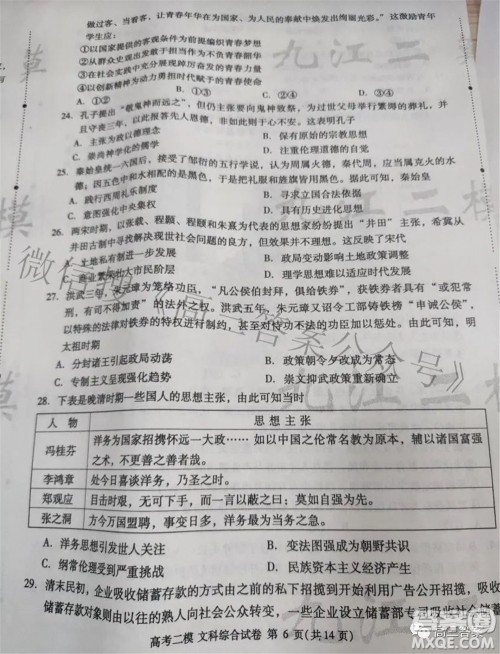 做过客、当看客，让青春年华在为国家、为人民的奉献中焕发出绚丽光彩。”这激励青年
学生应：
①以国家提供的客观条件为前提编织青春梦想
④以创新精神为动力勇担时代赋予的青春使命
A. ①②
24. 孔子提出“敬鬼神而远之”，但仍主张要向鬼神致祭，为过世父母举行繁缛的葬礼，并
且守丧三年，以此报答先人恩德，非如此则于心不安。这表明孔子
A. 主张为政以德理念
B. 保有原始的宗教思想
C. 崇尚神学化的儒学
D. 注重伦理道德的自觉
25. 秦始皇统一六国后，接受了邹衍的五行学说，认为周属火德，秦代周，应当属克火的水
德；因五色中和水相配的是黑色，于是把礼服和旌旗皆用黑色。据此可知，秦始皇
A. 践行西周礼乐制度
B. 寻求立国合法依据
C. 意图强化中央集权
D. 具有历史进化思想
26. 两宋时期，以张载、程颢、程颐和朱熹为代表的思想家纷纷提出“井田”主张，希冀从
井田古制中寻找解决现世社会问题的良方，但因效果不大而作罢。这反映了宋代
A. 土地私有制进一步发展
B. 政局变动影响土地政策调整
C. 商业繁荣出大市民阶层
D. 理学思想难以适应时代发展
27. 洪武三年，朱元璋为笼络功臣，“凡公侯伯封拜，俱给铁券”，获铁券者具有“或犯常
刑，有司不得加责”的法外之权。洪武五年，朱元璋又诏令工部铸铁榜“申诫公侯”，
以特殊的法律对铁券的特权进行制约，甚至对恃功不法的功臣加以惩处。由此可知，明
太祖时期
A. 分封诸王引起政局动荡
B. 政策朝令夕改成为常态
C. 专制主义呈现强化趋势
D. 崇文抑武政策重新确立
28. 下表是晚清时期一些国人的思想主张，由此可知当时
人 物 思 想 主 张
冯桂芬 洋务为国家招携怀远一大政……如以中国之伦常名教为原本，辅以诸国富强
之术，不更善之善者哉。
李鸿章 处今日喜谈洋务，乃圣之时。
郑观应 目击时艰，无可下手，而一言以蔽之曰：莫如自强为先。
张之洞 方今万国盟聘，事变日多，洋务最为当务之急。
A. 洋务思想引发世人关注
B. 变法图强成为朝野共识
C. 纲常伦理受到严重挑战
D. 民族资本主义经济产生
29. 清末民初，企业吸收储蓄存款的方式由之前的私下招揽到开始利用广告公开招揽，吸收
储蓄存款对象则由以往的熟人向社会公众转变，一些企业设立储蓄部专司吸收社会
高考二模 文科综合试卷 第 6 页(共14页)